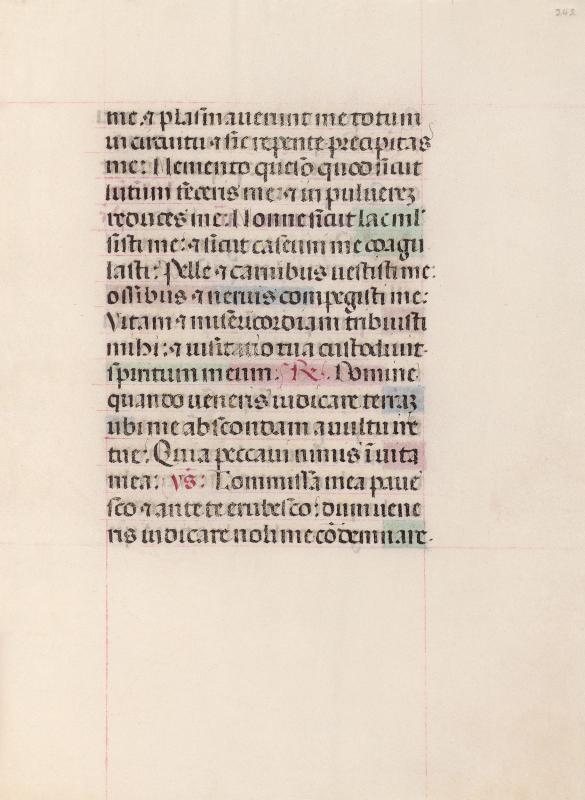 242
me: ⁊ plasmauerunt me totum
in circuitu ⁊ sic repente precipitas
me: Memento queso quod sicut
lutum feceris me: ⁊ in puluerez
reduces me: Nonne sicut lac mul
sisti me: ⁊ sicut caseum me coagu
lasti: Pelle ⁊ carnibus uestisti me:
ossibus ⁊ neruis compegisti me:
Vitam ⁊ misericordiam tribuisti
mihi: ⁊ uisitatio tua custodiuit
spiritum meum. R̃. Domine
quando ueneris iudicare terraz
ubi me abscondam a uultu ire
tue: Quia peccaui nimis ĩ uita
mea: v̄s: Commissa mea paue
sco ⁊ ante te erubesco: dum uene
ris iudicare noli me cõdemnare.